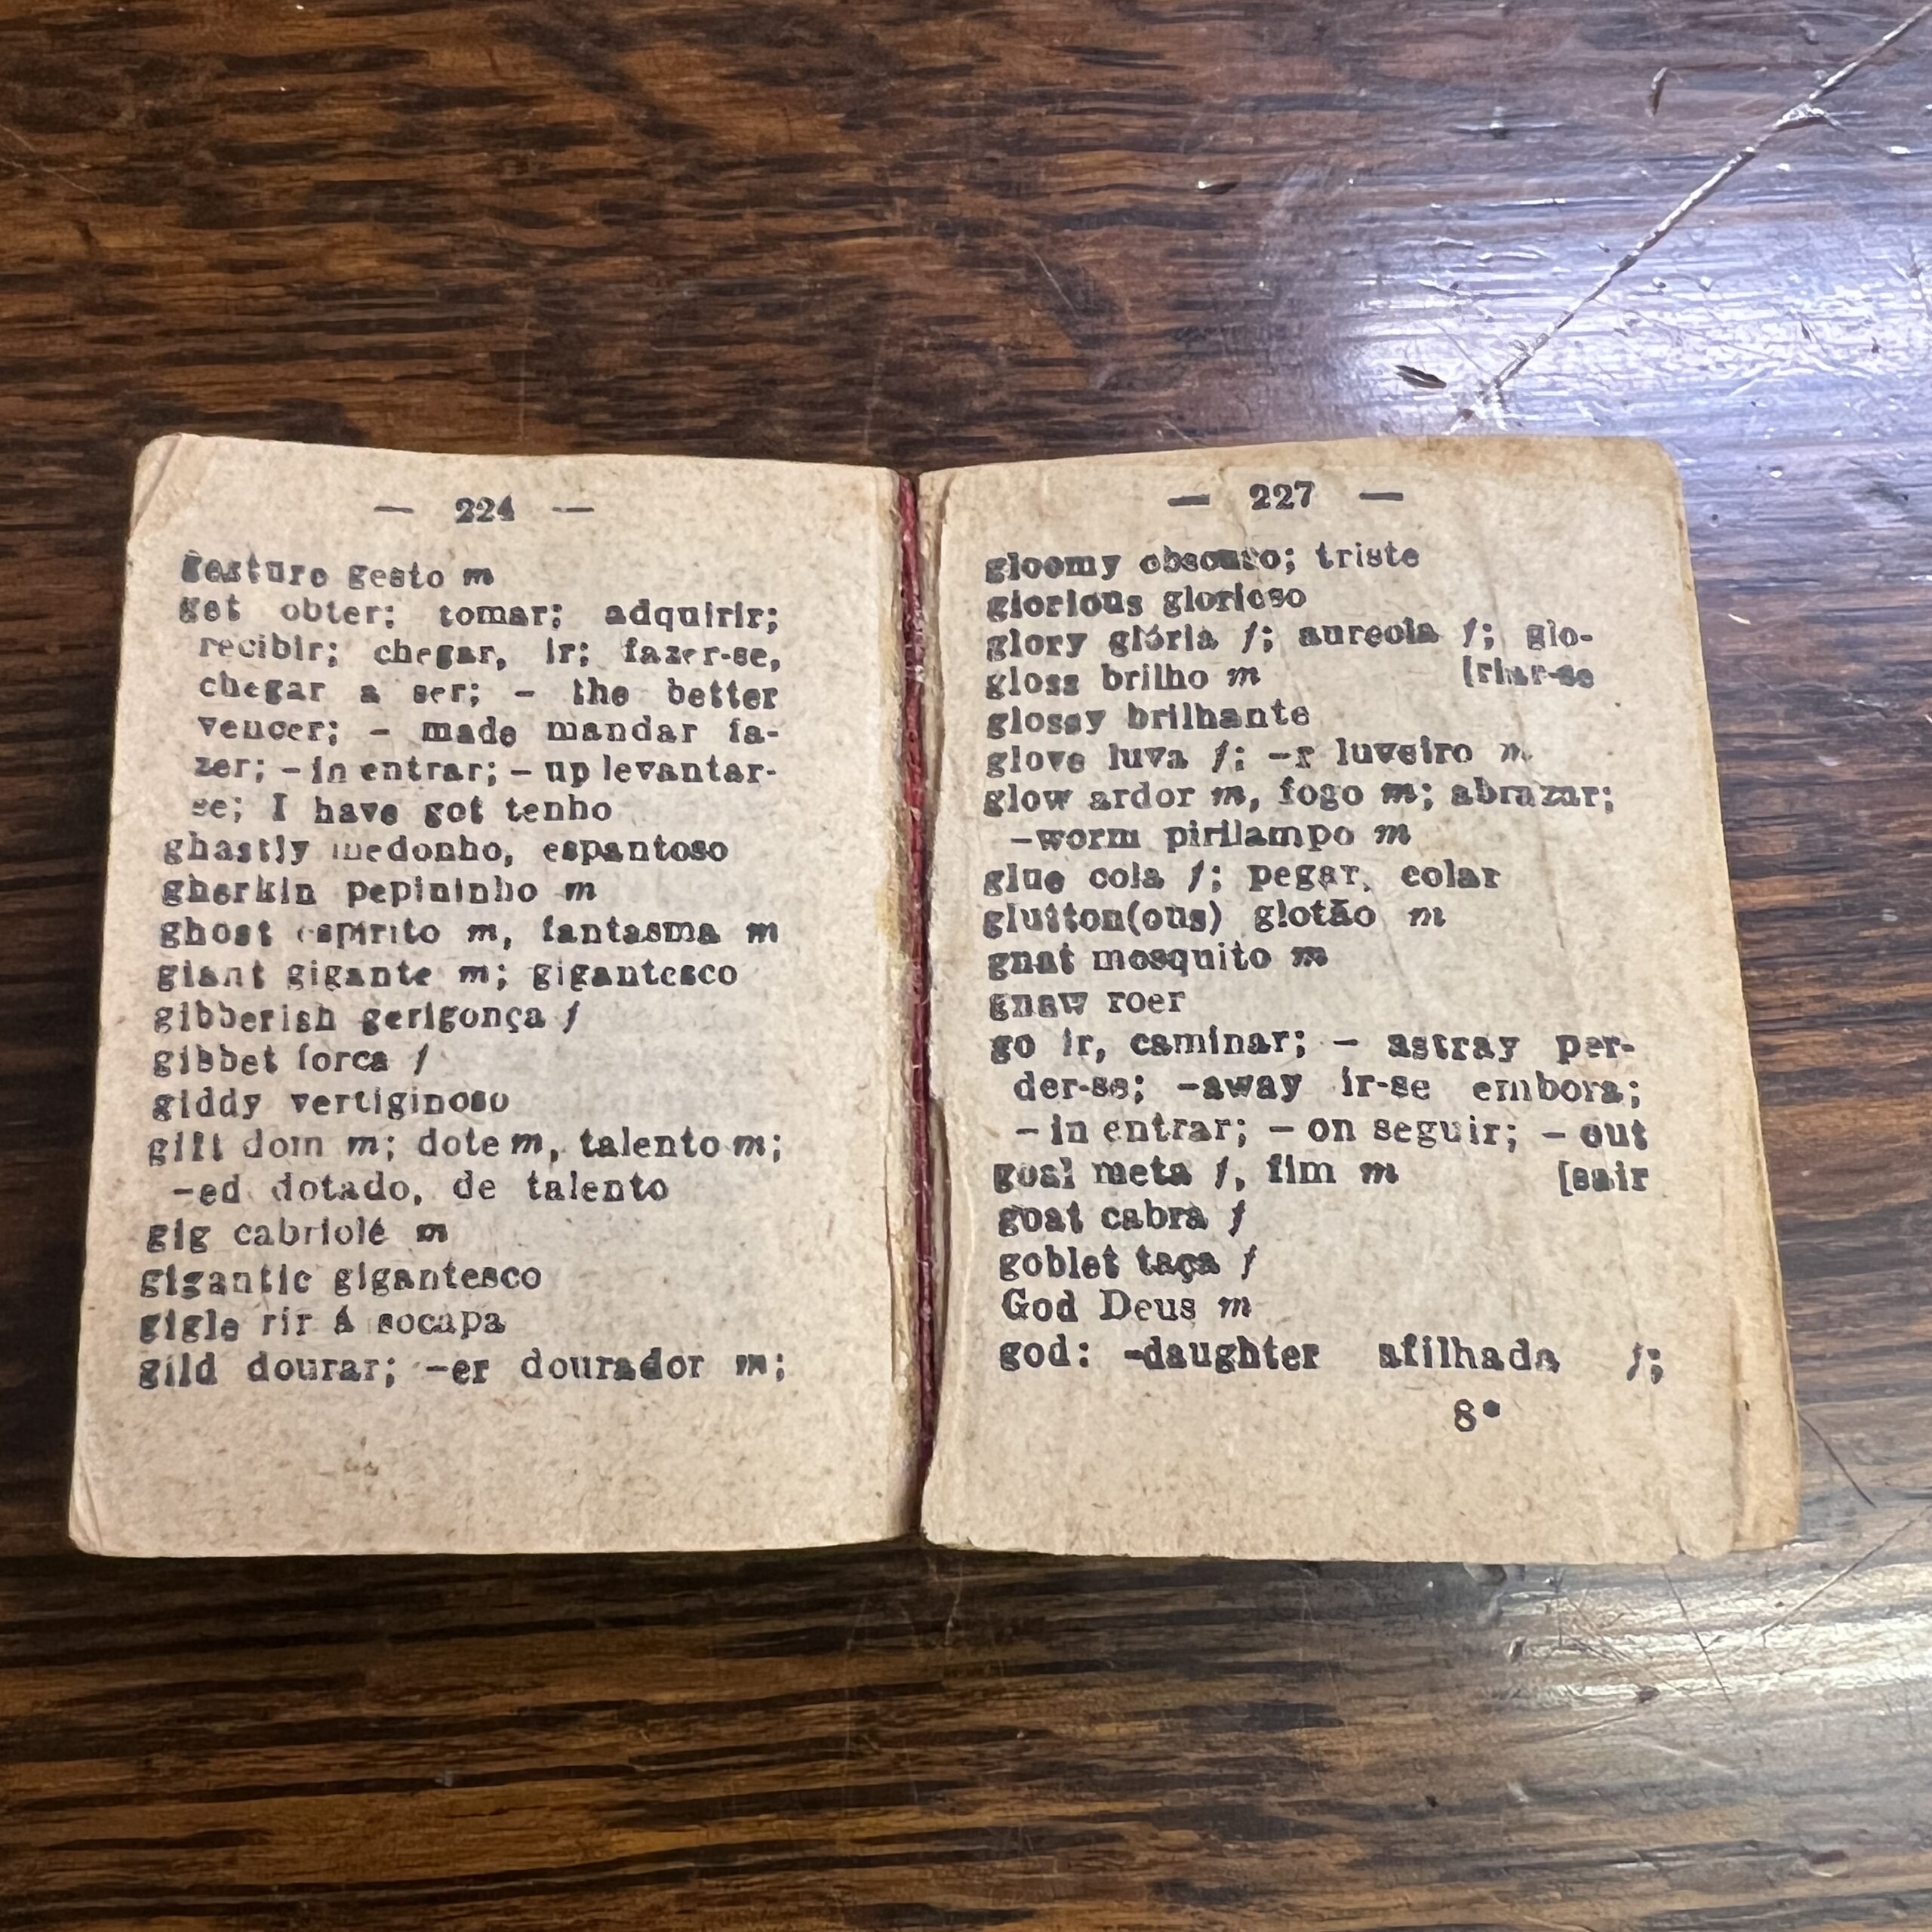 — 224 —
gesture gesto m
get obter; tomar; adquirir;
recibir; chegar, ir; fazer-se,
chegar a ser; – the better
vencer; – made mandar fa-
zer; – in entrar; – up levantar-
se; I have got tenho
ghastly medonho, espantoso
gherkin pepininho m
ghost espirito m, fantasma m
giant gigante m; gigantesco
gibberish gerigonça f
gibbet forca f
giddy vertiginoso
gift dom m; dote m, talento m;
–ed dotado, de talento
gig cabriolé m
gigantic gigantesco
gigle rir á socapa
gild dourar; –er dourador m;
— 227 —
gloomy obscuro; triste
glorious glorioso
glory glória f; aureola f; glo-
gloss brilho m [riar-se
glossy brilhante
glove luva f; –r luveiro m
glow ardor m, fogo m; abrazar;
–worm pirilampo m
glue cola f; pegar, colar
glutton(ous) glotão m
gnat mosquito m
gnaw roer
go ir, caminar; – astray per-
der-se; –away ir-se embora;
– in entrar; – on seguir; – out
goal meta f, fim m [sair
goat cabra f
goblet taça f
God Deus m
god: –daughter afilhada f;
8*